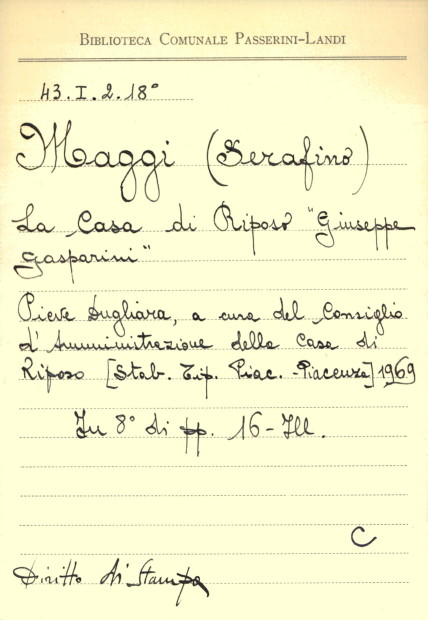 BIBLIOTECA COMUNALE PASSERINI-LANDI
43.I.2.18°
Maggi (Serafino)
La Casa di Riposo "Giuseppe
Gasparini"
Pieve Dugliara, a cura del Consiglio
d'Amministrazione della Casa di
Riposo [Stab. Tip. Piac. - Piacenza] 1969
In 8° di pp. 16 - Ill.
C
Diritto di Stampa